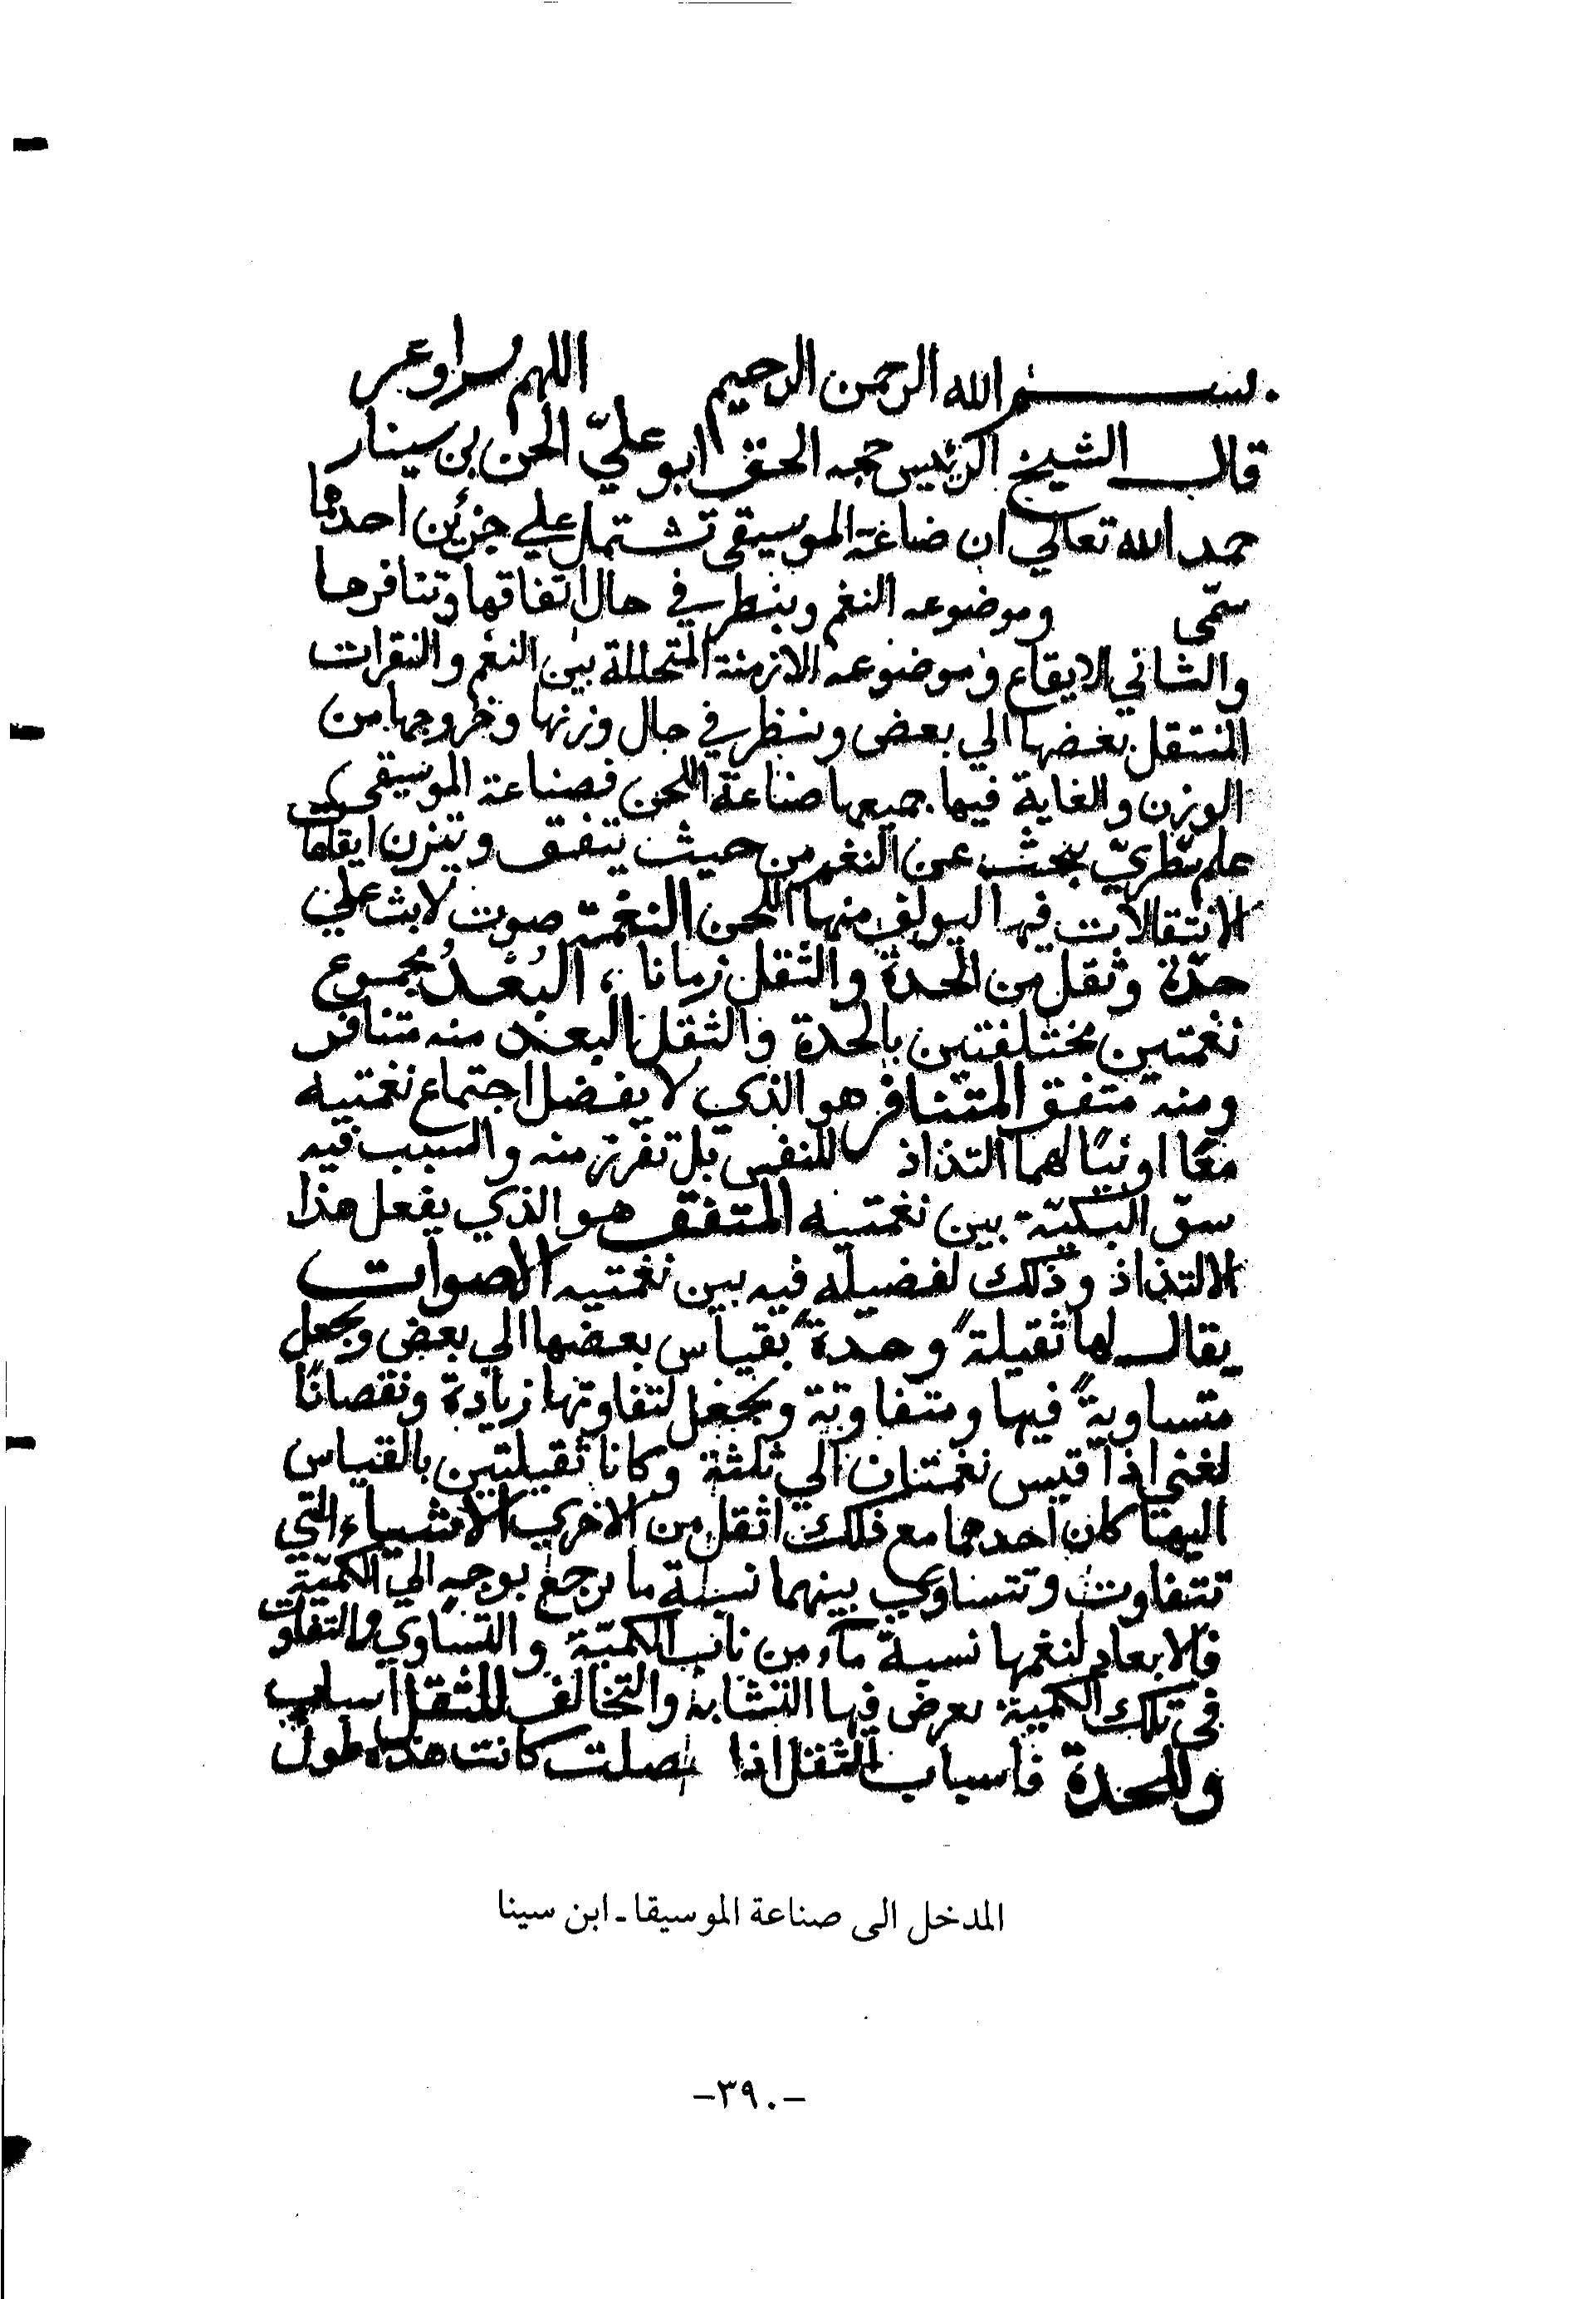 بسم الله الرحمن الرحيم اللهم
قال الشيخ الرئيس حجه الحق ابو علي الحسن بن سينا ر
حمه الله تعالي ان صناعة الموسيقى تشتمل علي جزئين احدهما
سمّى وموضوعه النغم وينظر في حال اتفاقها وتنافرها
والثاني الايقاع وموضوعه الازمنة المتخللة بين النغم والنقرات
المنتقل بعضها الي بعض وينظر في حال وزنها وخروجها من
الوزن والغاية فيها جميعها صناعة اللحن فصناعة الموسيقى
علم نظريّ يبحث عن النغم من حيث يتفق ويتزن
الانتقالات فيها ليولف منها اللحن النغمة صوت لابث علي
حدّة وثقل من الحدة والثقل زمانا ، البُعدُ مجموع
نغمتين مختلفتين بالحدة والثقل البعد منه متنافر
ومنه متفق المتنافر هو الذي لا يفضل اجتماع نغمتيه
معًا او التذاذ للنفس بل تفرز منه والسبب فيه
بين نغمتيه المتفق هو الذي يفعل هذا
الالتذاذ وذلك لفضيله فيه بين نغمتيه الاصوات
يقال لها ثقيلةً وحدةً بقياس بعضها الي بعض ويجعل
متساويةً فيها ومتفاوتة ويجعل لتفاوتها زيادة ونقصانًا
لغني اذا قيس نغمتان الي ثلثة وكانا ثقيلتين بالقياس
اليها كان احدهما مع ذلك اثقل من الاخري الاشياء التي
تتفاوت وتتساوي بينهما نسبة ما يرجع بوجهٍ الي الكميّة
فالابعاد لنغمها نسبة ماء من باب الكميّة والتساوي والتفاوت
في تلك الكمية يعرض فيها التشابه والتخالف للثقل اسباب
وللحدة فاسباب الثقل اذا كانت هذه طول
المدخل الى صناعة الموسيقا ـ ابن سينا
-٣٩٠-